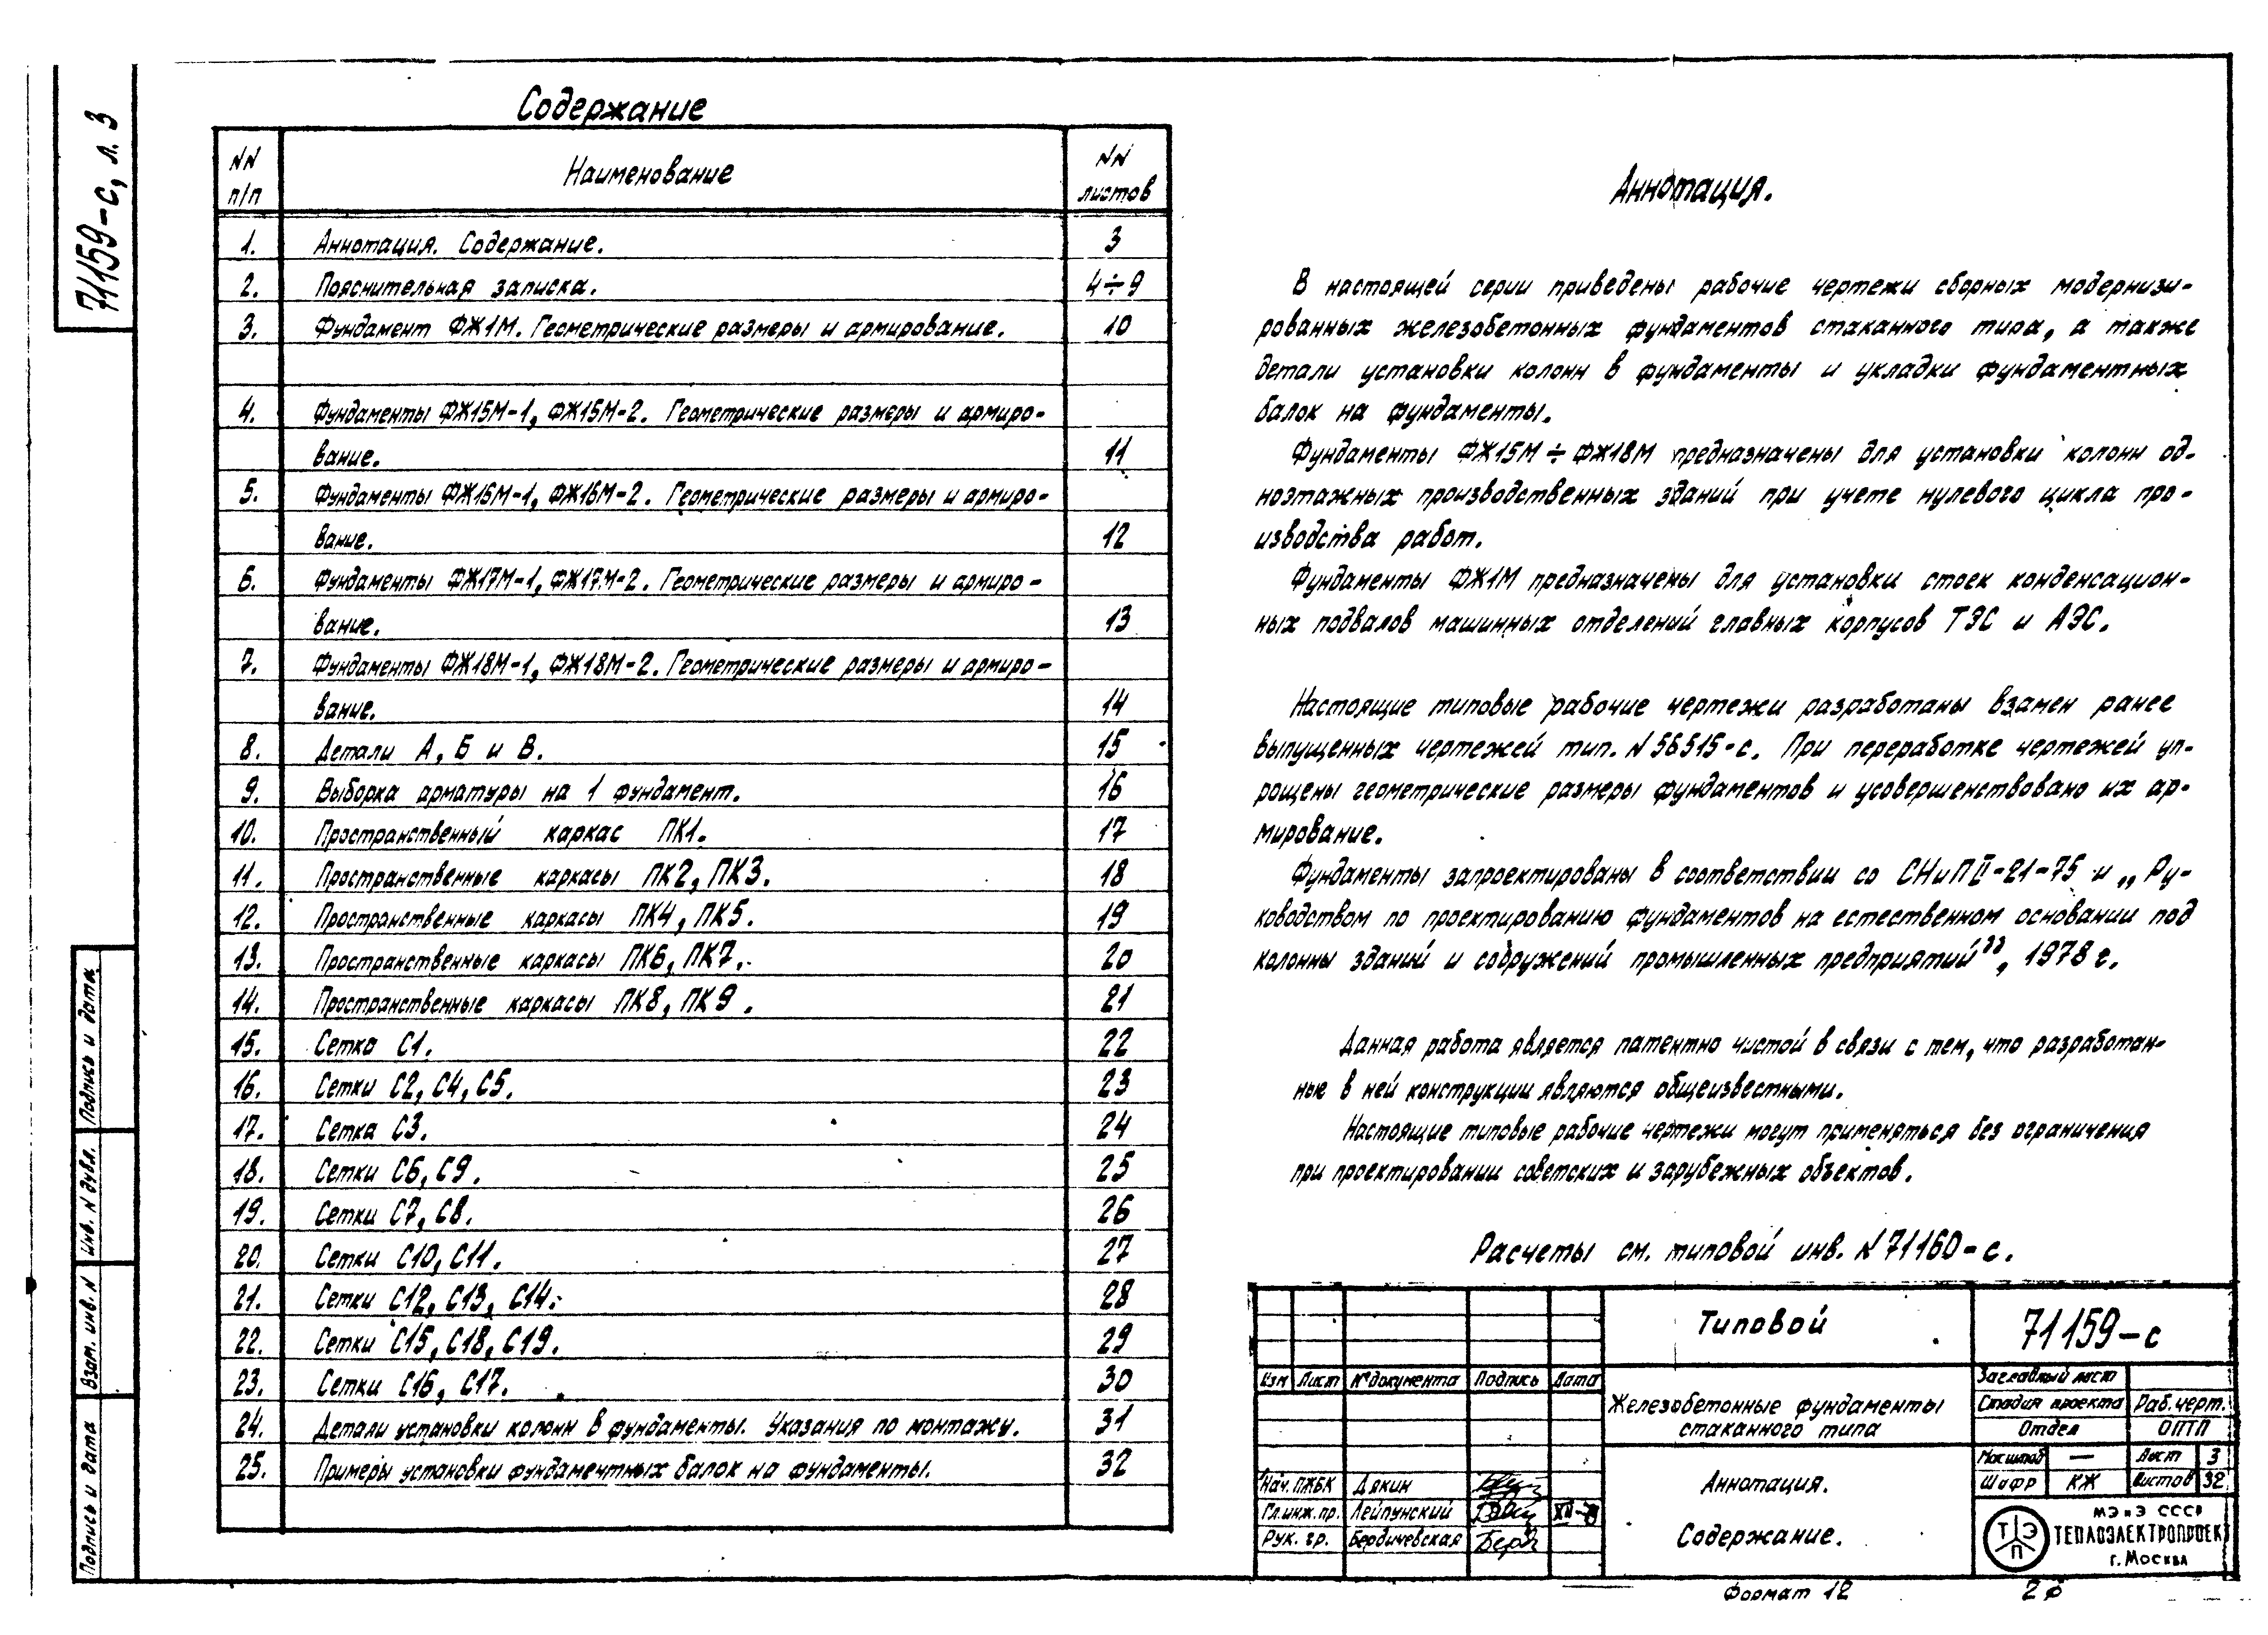 71159-с, л. 3
Содержание
NN п/п
Наименование
NN листов
1. Аннотация. Содержание. 3
2. Пояснительная записка. 4÷9
3. Фундамент ФЖ1М. Геометрические размеры и армирование. 10
4. Фундаменты ФЖ15М-1, ФЖ15М-2. Геометрические размеры и армиро-
вание. 11
5. Фундаменты ФЖ16М-1, ФЖ16М-2. Геометрические размеры и армиро-
вание. 12
6. Фундаменты ФЖ17М-1, ФЖ17М-2. Геометрические размеры и армиро-
вание. 13
7. Фундаменты ФЖ18М-1, ФЖ18М-2. Геометрические размеры и армиро-
вание. 14
8. Детали А, Б и В. 15
9. Выборка арматуры на 1 фундамент. 16
10. Пространственный каркас ПК1. 17
11. Пространственные каркасы ПК2, ПК3. 18
12. Пространственные каркасы ПК4, ПК5. 19
13. Пространственные каркасы ПК6, ПК7. 20
14. Пространственные каркасы ПК8, ПК9. 21
15. Сетка С1. 22
16. Сетки С2, С4, С5. 23
17. Сетка С3. 24
18. Сетки С6, С9. 25
19. Сетки С7, С8. 26
20. Сетки С10, С11. 27
21. Сетки С12, С13, С14. 28
22. Сетки С15, С18, С19. 29
23. Сетки С16, С17. 30
24. Детали установки колонн в фундаменты. Указания по монтажу. 31
25. Примеры установки фундаментных балок на фундаменты. 32
Аннотация.
В настоящей серии приведены рабочие чертежи сборных модернизи-
рованных железобетонных фундаментов стаканного типа, а также
детали установки колонн в фундаменты и укладки фундаментных
балок на фундаменты.
Фундаменты ФЖ15М÷ФЖ18М предназначены для установки колонн од-
ноэтажных производственных зданий при учете нулевого цикла про-
изводства работ.
Фундаменты ФЖ1М предназначены для установки стоек конденсацион-
ных подвалов машинных отделений главных корпусов ТЭС и АЭС.
Настоящие типовые рабочие чертежи разработаны взамен ранее
выпущенных чертежей тип. N 56515-с. При переработке чертежей уп-
рощены геометрические размеры фундаментов и усовершенствовано их ар-
мирование.
Фундаменты запроектированы в соответствии со СНиП II-21-75 и „Ру-
ководством по проектированию фундаментов на естественном основании под
колонны зданий и сооружений промышленных предприятий”, 1978 г.
Данная работа является патентно чистой в связи с тем, что разработан-
ные в ней конструкции являются общеизвестными.
Настоящие типовые рабочие чертежи могут применяться без ограничения
при проектировании советских и зарубежных объектов.
Расчеты см. типовой инв. N 71160-с.
Типовой
71159-с
Изм Лист № документа Подпись Дата
Железобетонные фундаменты
стаканного типа
Заглавный лист
Стадия проекта Раб.черт.
Отдел ОПТП
Масштаб — Лист 3
Шифр КЖ Листов 32
Аннотация.
Содержание.
Нач. ПЖБК Дякин
Гл.инж.пр. Лейпунский
Рук. гр. Бердичевская
МЭиЭ СССР
ТЭП
ТЕПЛОЭЛЕКТРОПРОЕКТ
г. Москва
Формат 12
Подпись и дата
Инв. N дубл.
Взам. инв. N
Подпись и дата